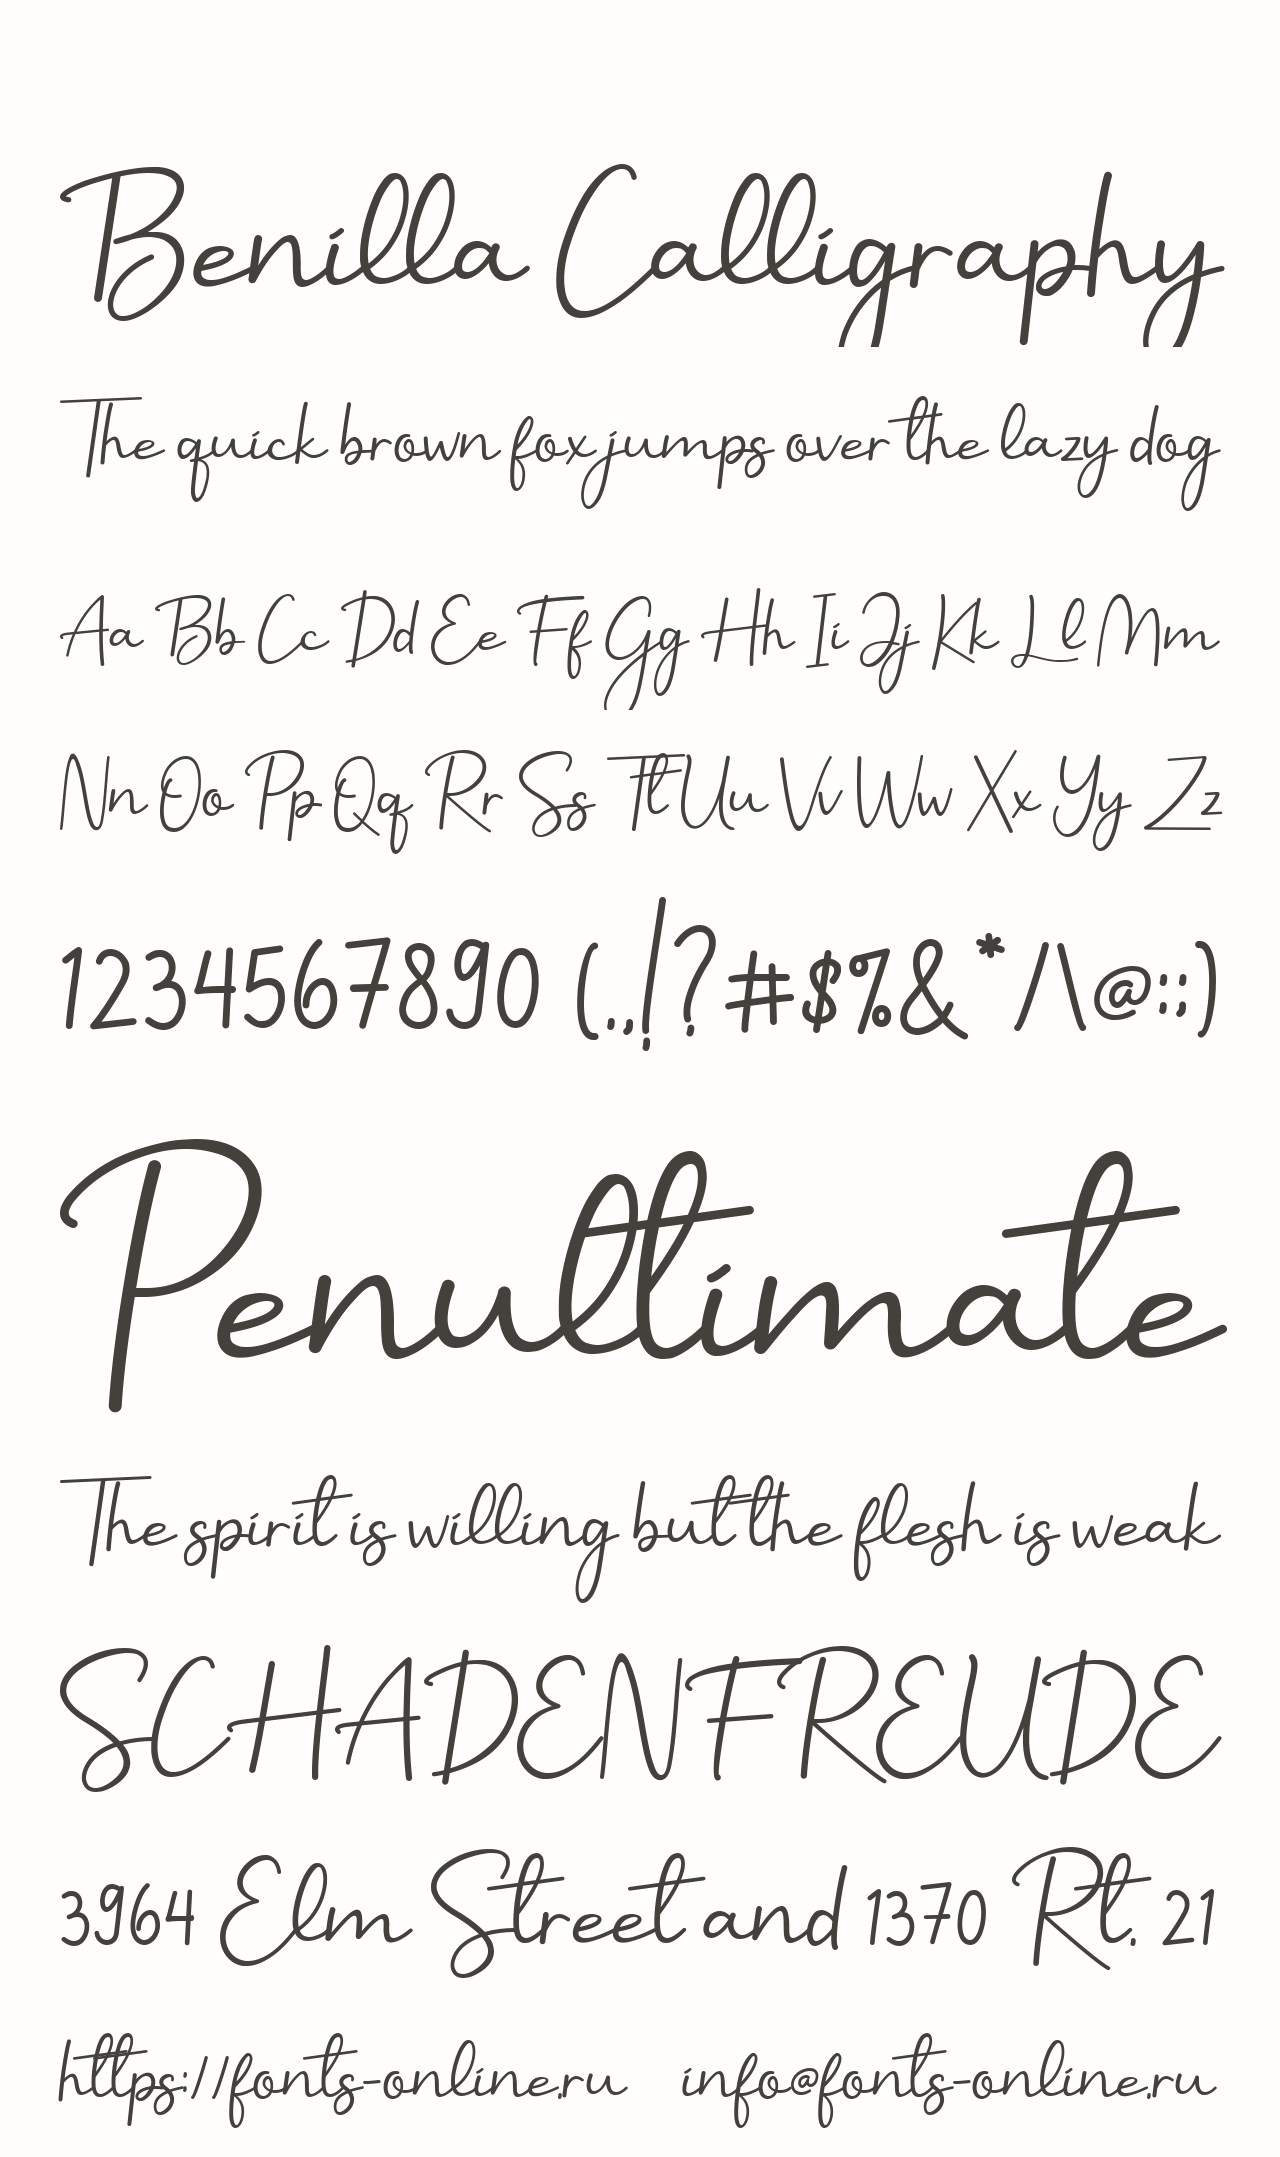 Benilla Calligraphy
The quick brown fox jumps over the lazy dog
Aa Bb Cc Dd Ee Ff Gg Hh Ii Jj Kk Ll Mm
Nn Oo Pp Qq Rr Ss Tt Uu Vv Ww Xx Yy Zz
1234567890 (.,!?#$%&*/\@:;)
Penultimate
The spirit is willing but the flesh is weak
SCHADENFREUDE
3964 Elm Street and 1370 Rt. 21
https://fonts-online.ru info@fonts-online.ru